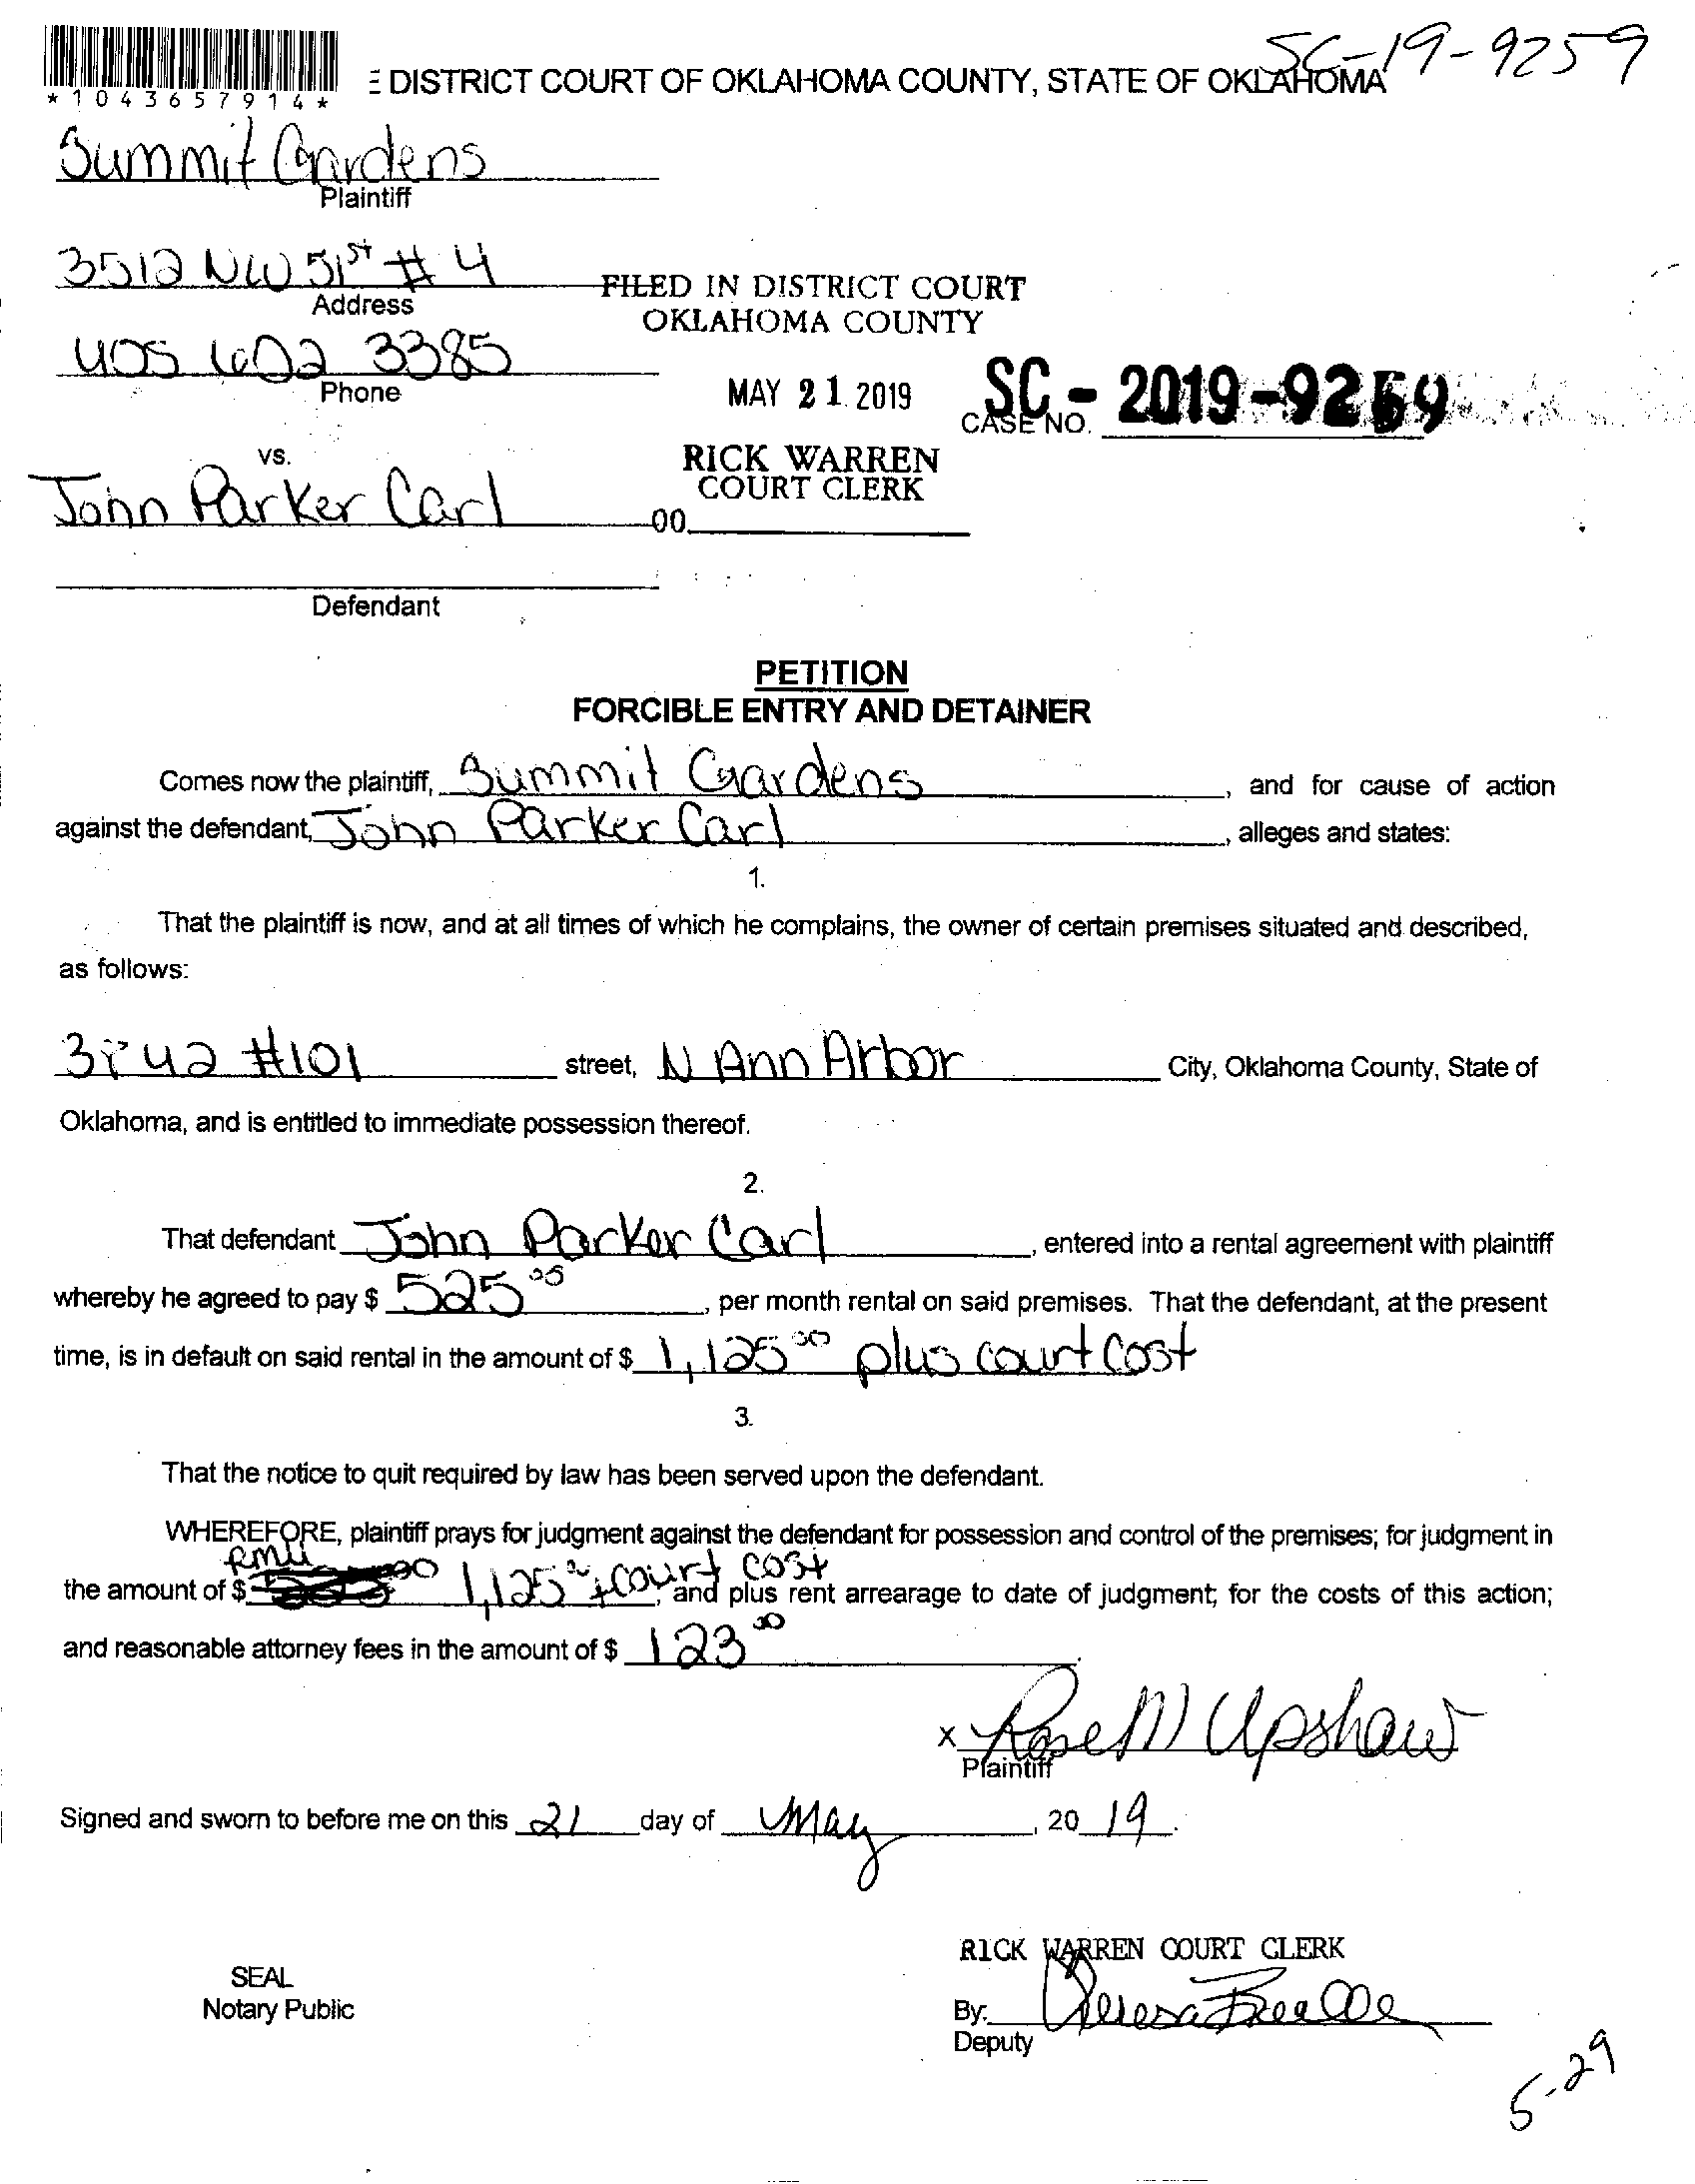 SC-19-9259
DISTRICT COURT OF OKLAHOMA COUNTY, STATE OF OKLAHOMA
*1043657914*
Summit Gardens
Plaintiff
3512 NW 51st # 4
Address
FILED IN DISTRICT COURT
OKLAHOMA COUNTY
405 602 3385
Phone
MAY 21 2019
SC - 2019-9259
CASE NO.
vs.
RICK WARREN
COURT CLERK
John Parker Carl
00
Defendant
PETITION
FORCIBLE ENTRY AND DETAINER
Comes now the plaintiff, Summit Gardens, and for cause of action
against the defendant, John Parker Carl, alleges and states:
1.
That the plaintiff is now, and at all times of which he complains, the owner of certain premises situated and described,
as follows:
#101 street, N Ann Arbor City, Oklahoma County, State of
Oklahoma, and is entitled to immediate possession thereof.
2.
That defendant John Parker Carl, entered into a rental agreement with plaintiff
whereby he agreed to pay $ 525, per month rental on said premises. That the defendant, at the present
time, is in default on said rental in the amount of $ 1,125 00 plus court cost
3.
That the notice to quit required by law has been served upon the defendant.
WHEREFORE, plaintiff prays for judgment against the defendant for possession and control of the premises; for judgment in
the amount of $ 1,125 + court cost, and plus rent arrearage to date of judgment; for the costs of this action;
and reasonable attorney fees in the amount of $ 123 00.
x Rose M Upshaw
Plaintiff
Signed and sworn to before me on this 21 day of May, 20 19.
RICK WARREN COURT CLERK
SEAL
Notary Public
By: Teresa
Deputy
5-29